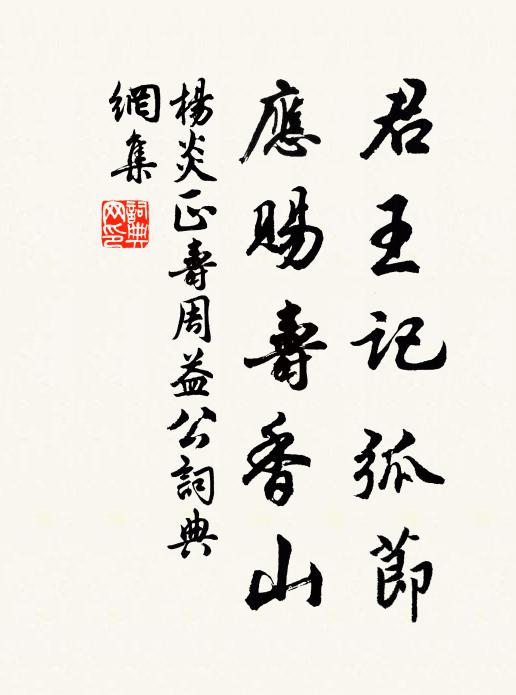 君王記孤節
應賜壽香山
楊炎正壽周益公詞典
網集
詞典網印